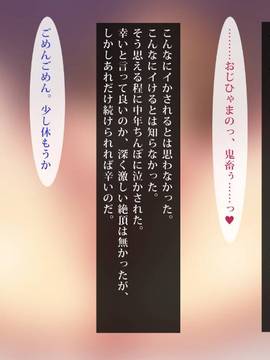 ………おじひゃまのっ、鬼畜ぅ……っ♥
こんなにイかされるとは思わなかった。
こんなにイけるとは知らなかった。
そう思える程に中年ちんぽに泣かされた。
幸いと言って良いのか、深く激しい絶頂は無かったが、
しかしあれだけ続けられれば辛いのだ。
ごめんごめん。少し休もうか